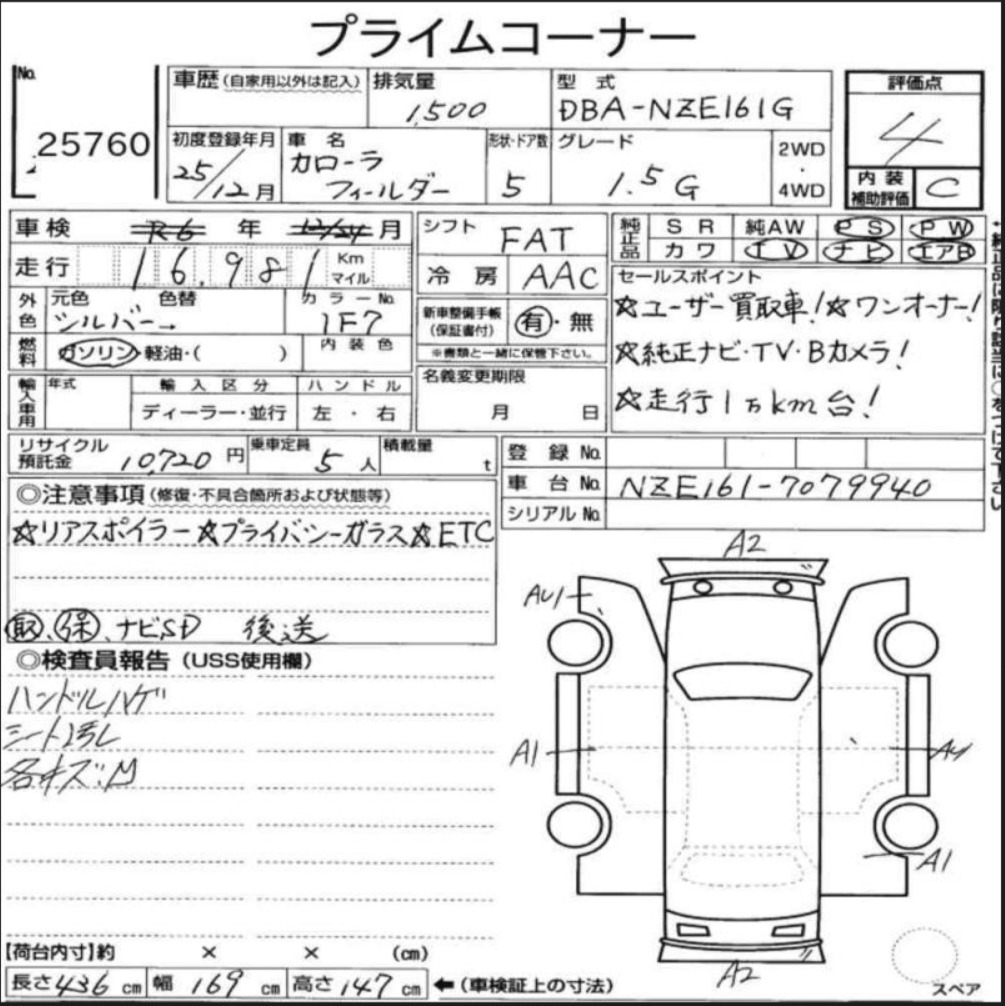 プライムコーナー
No.
25760
車歴(自家用以外は記入)
排気量
1,500
型 式
DBA-NZE161G
評価点
4
初度登録年月
25/12月
車 名
カローラ
フィールダー
形状・ドア数
5
グレード
1.5G
2WD
・
4WD
内装
補助評価
C
車検 R6 年 12/24 月
シフト FAT
純正品
S R 純AW P S P W
カワ T V ナビ エアB
走行 16,981 Km
マイル
冷房 AAC
セールスポイント
☆ユーザー買取車!☆ワンオーナー!
☆純正ナビ・TV・Bカメラ!
☆走行1万km台!
外色
元色 色替 カラーNo.
シルバー→ 1F7
新車整備手帳
(保証書付)
有・無
※書類と一緒に保管下さい。
燃料
ガソリン・軽油・( )
内装色
輸入車用
年式 輸入区分 ハンドル
ディーラー・並行 左・右
名義変更期限
月 日
リサイクル
預託金
10,720円
乗車定員
5人
積載量
t
登録No.
車台No. NZE161-7079940
シリアルNo.
◎注意事項(修復・不具合箇所および状態等)
☆リアスポイラー☆プライバシーガラス☆ETC
取、保、ナビSD 後送
◎検査員報告(USS使用欄)
ハンドルハゲ
各キズ凹
A2
AU1
A1
A1
A2
スペア
【荷台内寸】約 × × (cm)
長さ436cm 幅169cm 高さ147cm ←(車検証上の寸法)